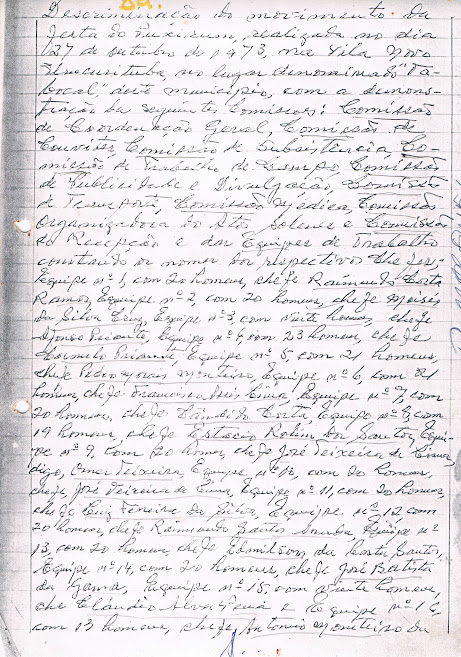 Descriminação do movimento da
festa do Puxirum, realizada no dia
27 de outubro de 1973, na Vila Novo
no lugar denominado "Ta-
bocal" deste município, com a demons-
tração das seguintes Comissões: Comissão
de Coordenação Geral, Comissão de
Convites, Comissão de Subsistência, Co-
missão de Trabalho de Campo, Comissão
de Publicidade e Divulgação, Comissão
de Transporte, Comissão Médica, Comissão
Organizadora do Atos Solenes e Comissão
de Recepção e das Equipes de Trabalho
constando os nomes dos respectivos Chefes:
Equipe nº 1, com 20 homens, chefe Raimundo Costa
Ramos, Equipe nº 2, com 20 homens, chefe Moisés
da Silva Cruz, Equipe nº 3, com vinte homens, chefe
Afonso Equipe nº 4, com 23 homens, chefe
Equipe nº 5, com 21 homens,
chefe Pedro Morais Monteiro, Equipe nº 6, com 21
homens, chefe Francisco Lima, Equipe nº 7, com
20 homens, chefe Cândido Costa, Equipe nº 8, com
19 homens, chefe Estacio Rolim dos Santos, Equi-
pe nº 9, com 20 homens, chefe José Teixeira de Lima,
digo, Omar Teixeira, Equipe nº 10, com 20 homens,
chefe, José Teixeira de Lima, Equipe nº 11, com 20 homens,
chefe Luiz Pereira da Silva, Equipe nº 12 com
20 homens, chefe Raimundo Santos Equipe nº
13, com 20 homens, chefe Edmilson da Costa Santos,
Equipe nº 14, com 20 homens, chefe José Batista
da Gama, Equipe nº 15, com vinte homens,
che Cláudio e Equipe nº 16,
com 13 homens, chefe, Antonio Monteiro da